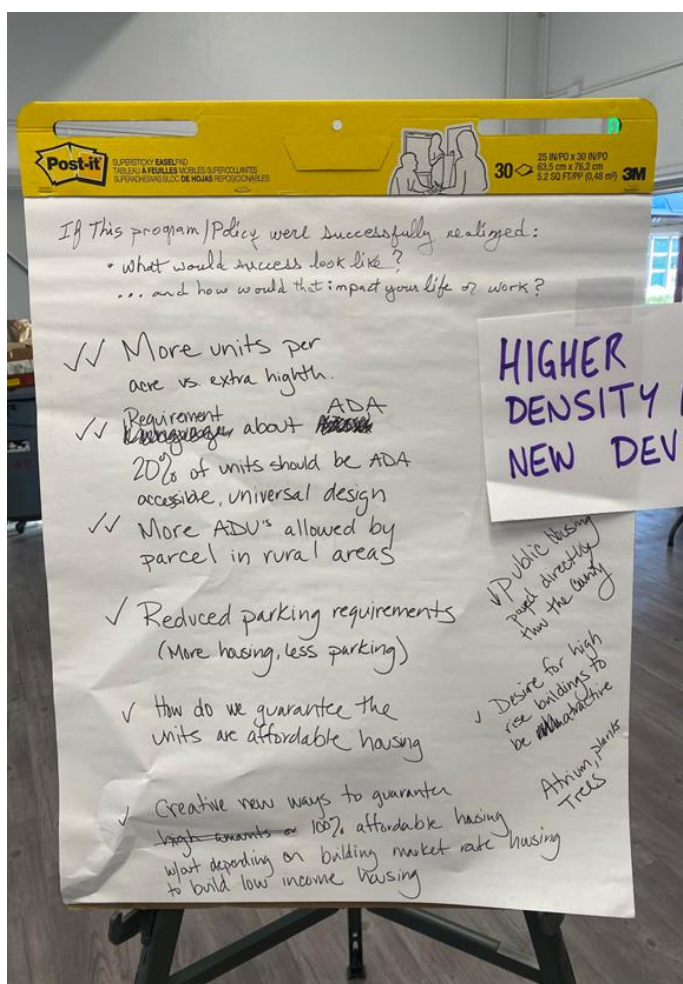 Post-it
SUPERSTICKY EASEL PAD
TABLEAU À FEUILLES MOBILES SUPERCOLLANTES
SUPERADHESIVAS BLOC DE HOJAS REPOSICIONABLES
30
25 IN/PO x 30 IN/PO
63,5 cm x 76,2 cm
5.2 SQ FT/PP² (0,48 m²)
3M
If This program/Policy were successfully realized:
• What would success look like?
... and how would that impact your life or work?
✓✓ More units per
acre vs. extra highth.
✓✓ Requirement about ADA
20% of units should be ADA
accessible, universal design
✓✓ More ADU's allowed by
parcel in rural areas
✓ Reduced parking requirements
(More housing, less parking)
✓ How do we guarantee the
units are affordable housing
✓ Creative new ways to guarantee
high amounts of 100% affordable housing
w/out depending on building market rate housing
to build low income housing
HIGHER
DENSITY
NEW DEV
✓ Public housing
payed directly
thru the County
✓ Desire for high
rise buildings to
be atractive
Atrium, plants
Trees